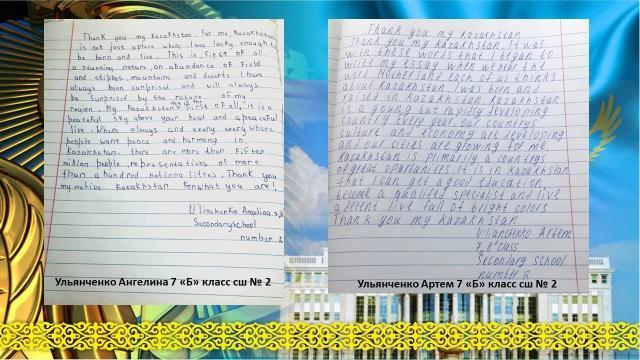 Thank you my Kazakhstan. For me, Kazakhstan
is not just a place where I was lucky enough to
be born and live. This is, first of all
a stunning nature, an abundance of field
and steppes, mountains and deserts. I have
always been surprised and will always
be surprised by the nature of my
region. My Kazakhstan first of all, it is a
peaceful sky above your head and a peaceful
live. Where always and every every where
people want peace and harmony in
Kazakhstan there are more than fifteen
million people, representatives of more
than a hundred nationalities. Thank you
my native Kazakhstan for what you are!
Ulianchenko Angelina
Secondary School
number 2
Ульянченко Ангелина 7 «Б» класс сш № 2
Thank you my Kazakhstan
Thank you my Kazakhstan. It was
with these words that I began to
write my essay when we hear the
word Motherland each of us thinks
about Kazakhstan. I was born and
raised in Kazakhstan. Kazakhstan
is a young but rapidly developing
country every year our countrys
culture and economy are developing
and our cities are glowing for me.
Kazakhstan is primarily a countrys
of great oportunities. it is in Kazakhstan
that I can get a good education,
become a qualified specialist and live
a decent live full of bright colors
Thank you my Kazakhstan
Ulianchenko Artem
7 class
Secondary school
number 2
Ульянченко Артем 7 «Б» класс сш № 2